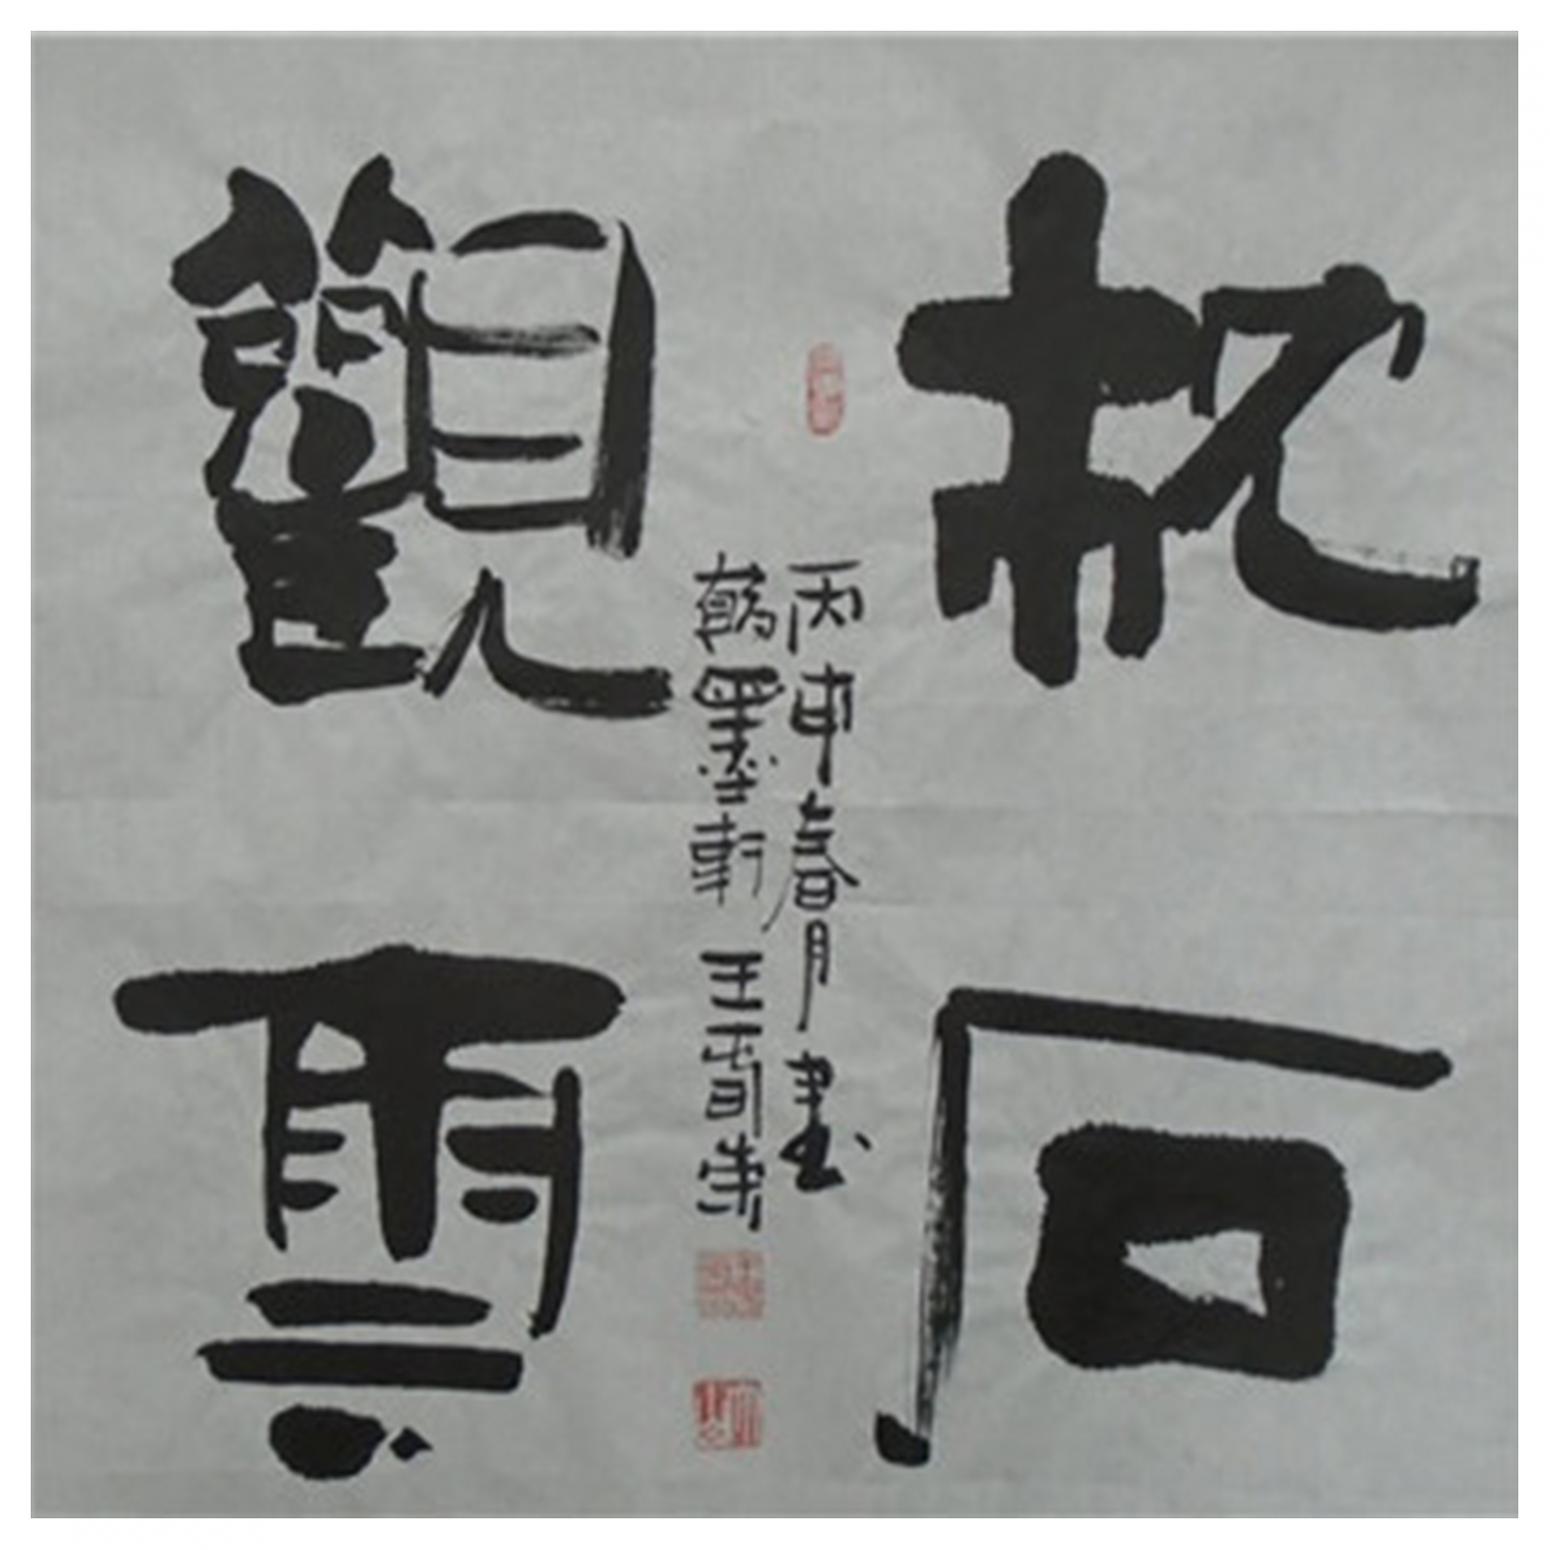 枕石
觀雲
丙申春月書
墨軒 王